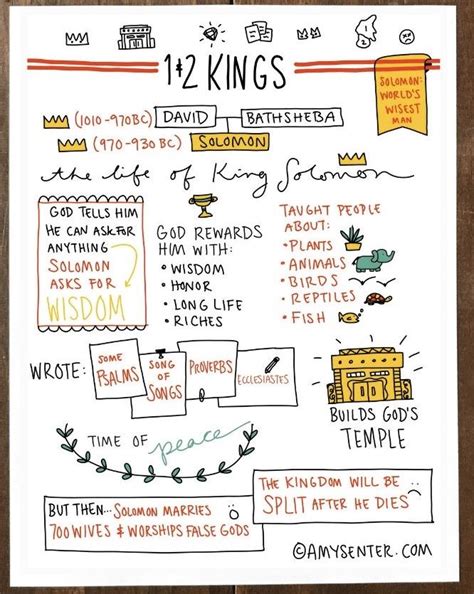 1 & 2 KINGS
SOLOMON:
WORLD'S
WISEST
MAN
(1010-970BC) DAVID BATHSHEBA
(970-930 BC) SOLOMON
the life of King Solomon
GOD TELLS HIM
HE CAN ASK FOR
ANYTHING
SOLOMON
ASKS FOR
WISDOM
GOD REWARDS
HIM WITH:
• WISDOM
• HONOR
• LONG LIFE
• RICHES
TAUGHT PEOPLE
ABOUT:
• PLANTS
• ANIMALS
• BIRDS
• REPTILES
• FISH
WROTE:
SOME
PSALMS
SONG
OF
SONGS
PROVERBS
ECCLESIASTES
BUILDS GOD'S
TEMPLE
TIME OF peace
BUT THEN... SOLOMON MARRIES
700 WIVES & WORSHIPS FALSE GODS
THE KINGDOM WILL BE
SPLIT AFTER HE DIES
©AMYSENTER.COM